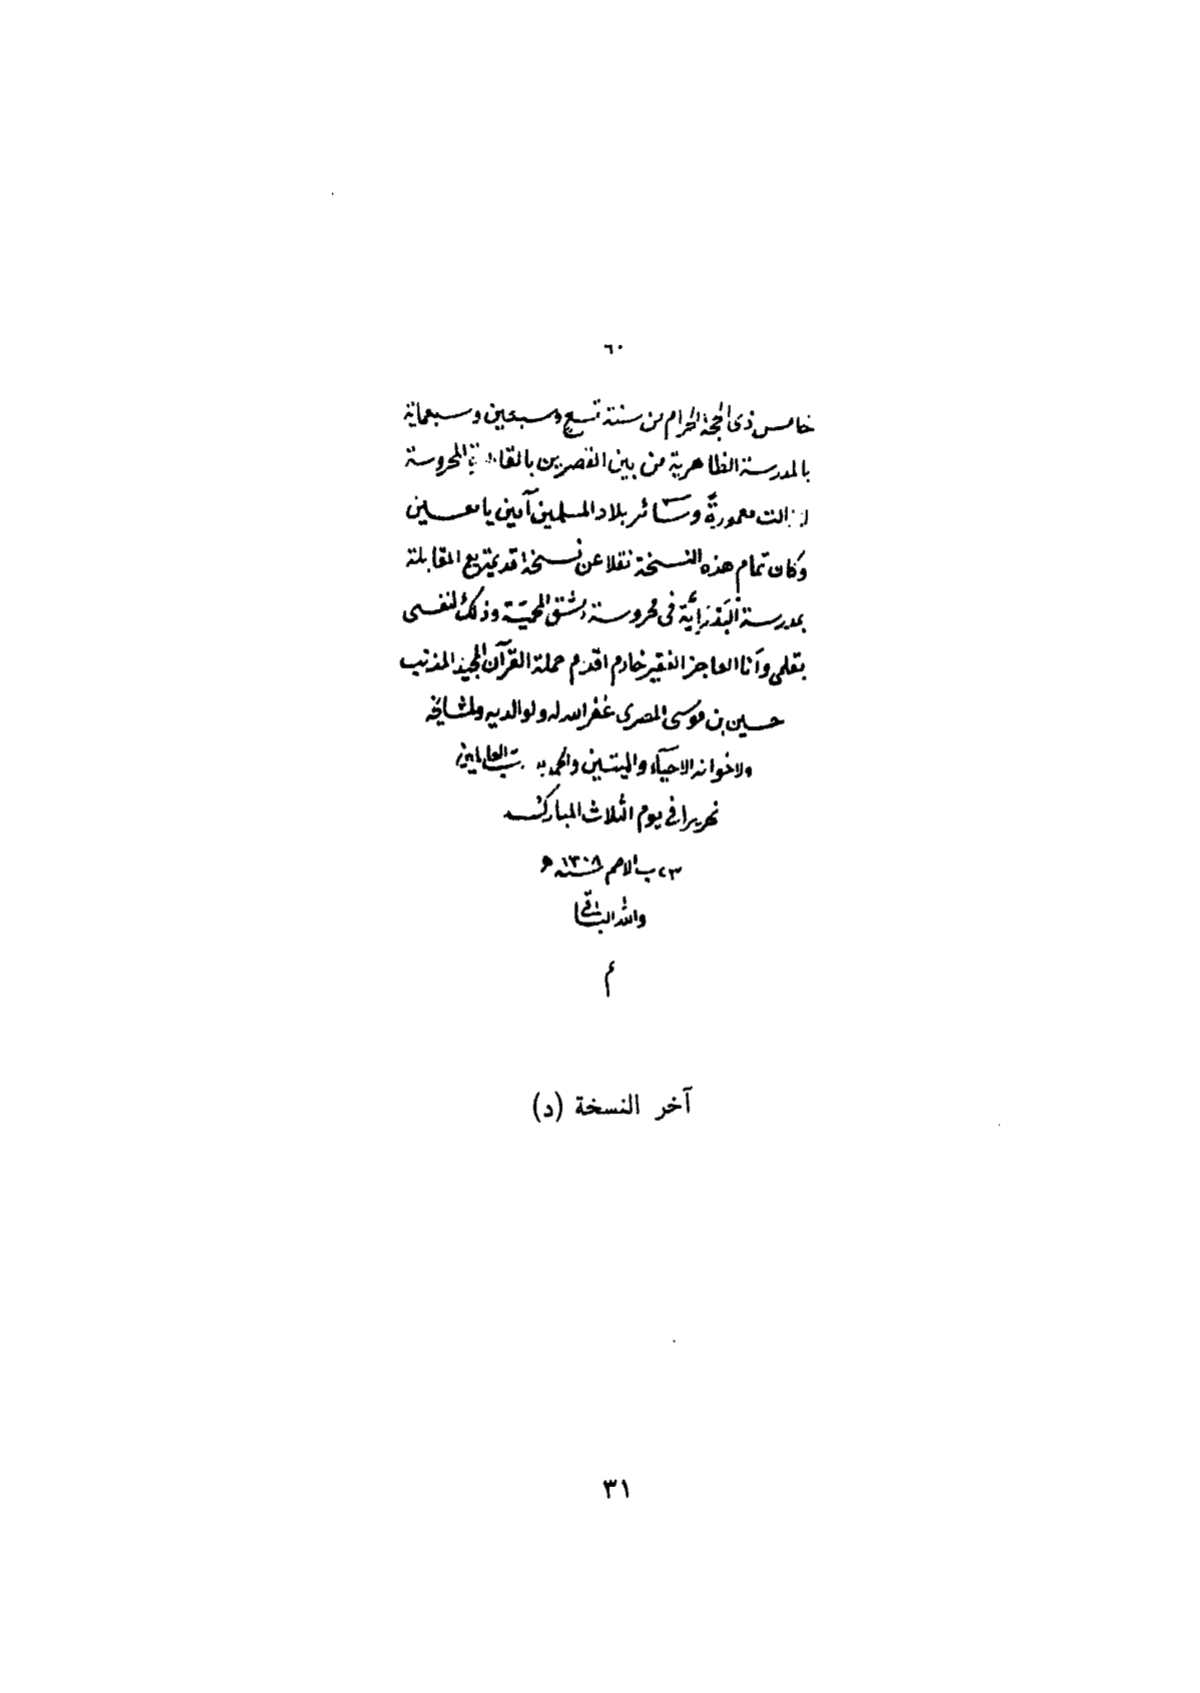 ٦٠
خامس ذى الحجة الحرام من سنة تسع وسبعين وسبعماية
بالمدرسة الظاهرية من بين القصرين بالقاهرة المحروسة
لازالت معمورةً وسائر بلاد المسلمين آمين يا معين
وكان تمام هذه النسخة نقلا عن نسخة قديمة مع المقابلة
بمدرسة البَدْرَائيّة فى محروسة دمشق المحميّة وذلك لنفسى
بقلمى وأنا العاجز الفقير خادم اقدم حملة القرآن المجيد المذنب
حسين بن موسى المصرى غفر الله له ولوالديه ولمشايخه
ولاخوانه الاحيآء والميتين والحمد لله رب العالمين
تحريرا فى يوم الثلاث المبارك
٢٣ ب الاصم سنة ١٣٠٨
والله الباقى
م
آخر النسخة (د)
٣١